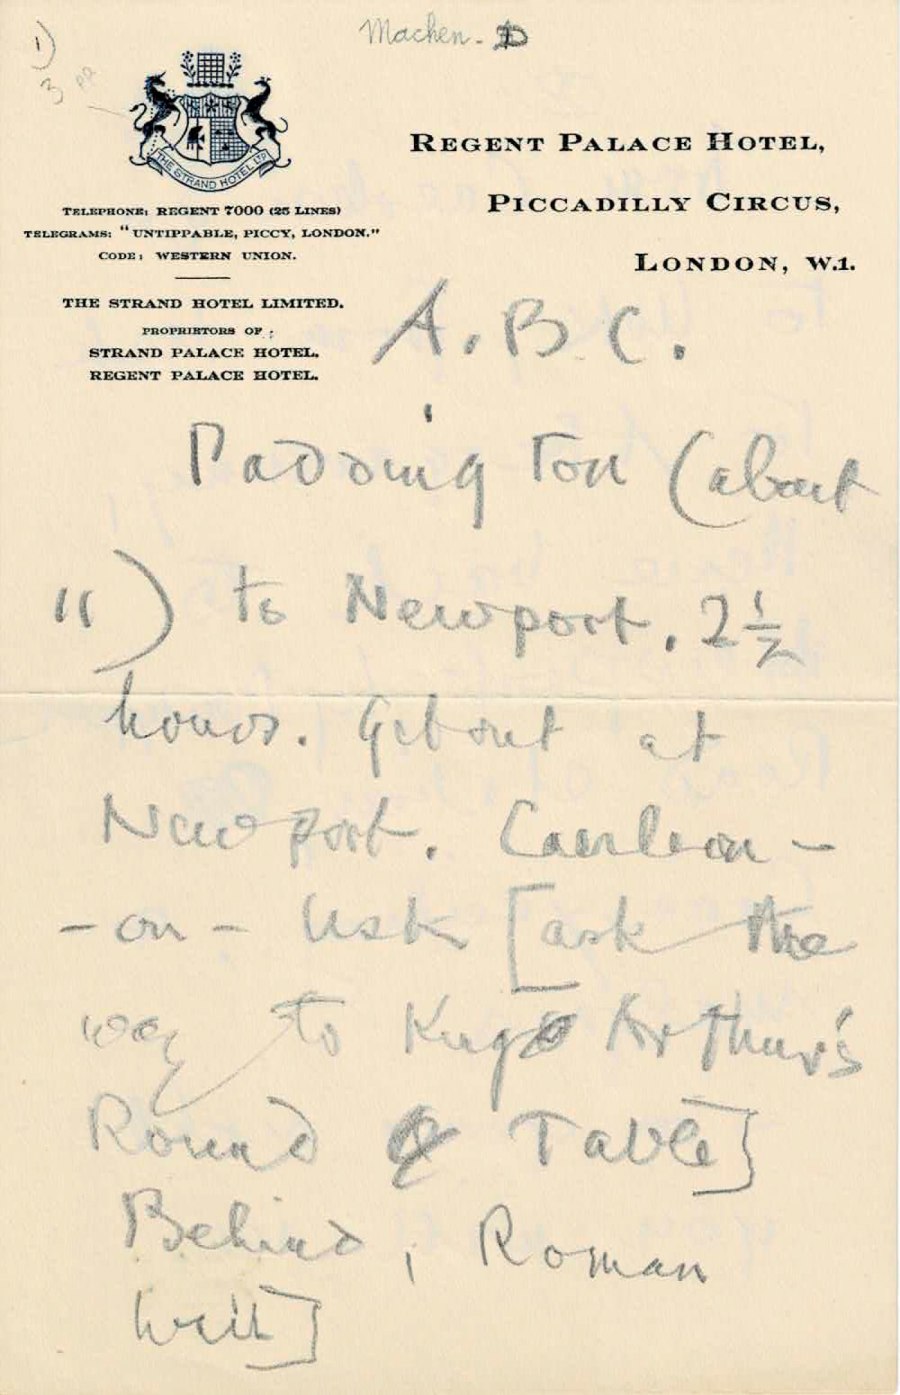 1)
3 pp
Machen - D
THE STRAND HOTEL LTD
TELEPHONE: REGENT 7000 (25 LINES)
TELEGRAMS: "UNTIPPABLE, PICCY, LONDON."
CODE: WESTERN UNION.
THE STRAND HOTEL LIMITED.
PROPRIETORS OF :
STRAND PALACE HOTEL.
REGENT PALACE HOTEL.
REGENT PALACE HOTEL,
PICCADILLY CIRCUS,
LONDON, W.1.
A.B.C.
Paddington (about
11) to Newport. 2½
hours. Get out at
Newport. Caerleon -
- on - Usk [ask the
way to King Arthur's
Round Table]
Behind, Roman
Wall]